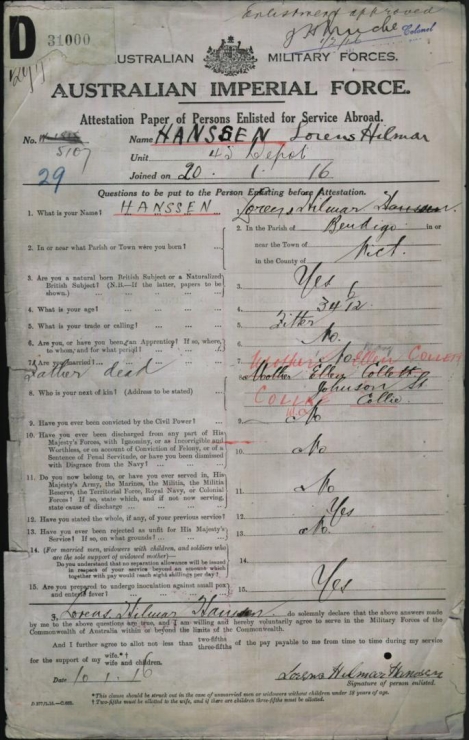 Enlistment approved
Colonel
D
31000
AUSTRALIAN MILITARY FORCES.
AUSTRALIAN IMPERIAL FORCE.
Attestation Paper of Persons Enlisted for Service Abroad.
No. 5107 Name HANSSEN Lorens Hilmar
Unit 43 Depot
29 Joined on 20 . 1 . 16
Questions to be put to the Person Enlisting before Attestation.
1. What is your Name? HANSSEN Lorens Hilmar Hanssen.
2. In or near what Parish or Town were you born?
2. In the Parish of Bendigo in or
near the Town of
in the County of Vict.
3. Are you a natural born British Subject or a Naturalized
British Subject? (N.B.—If the latter, papers to be
shown.)
3. Yes
4. What is your age? 4. 34 6/12
5. What is your trade or calling? 5. Fitter
6. Are you, or have you been an Apprentice? If so, where,
to whom, and for what period?
6. No.
7. Are you married? 7. No
Father dead
Mother Ellen
8. Who is your next of kin? (Address to be stated)
8. Mother Ellen
Johnson St
Collie
9. Have you ever been convicted by the Civil Power? 9. No
10. Have you ever been discharged from any part of His
Majesty's Forces, with Ignominy, or as Incorrigible and
Worthless, or on account of Conviction of Felony, or of
a Sentence of Penal Servitude, or have you been dismissed
with Disgrace from the Navy?
10. No
11. Do you now belong to, or have you ever served in, His
Majesty's Army, the Marines, the Militia, the Militia
Reserve, the Territorial Force, Royal Navy, or Colonial
Forces? If so, state which, and if not now serving,
state cause of discharge
11. No
12. Have you stated the whole, if any, of your previous service? 12. Yes
13. Have you ever been rejected as unfit for His Majesty's
Service? If so, on what grounds?
13. No
14. (For married men, widowers with children, and soldiers who
are the sole support of widowed mother)—
Do you understand that no separation allowance will be issued
in respect of your service beyond an amount which
together with pay would reach eight shillings per day?
14.
15. Are you prepared to undergo inoculation against small pox
and enteric fever?
15. Yes
I, Lorens Hilmar Hanssen do solemnly declare that the above answers made
by me to the above questions are true, and I am willing and hereby voluntarily agree to serve in the Military Forces of the
Commonwealth of Australia within or beyond the limits of the Commonwealth.
And I further agree to allot not less than two-fifths three-fifths of the pay payable to me from time to time during my service
for the support of my wife.* wife and children.
Date 10 . 1 . 16
Lorens Hilmar Hanssen
Signature of person enlisted.
* This clause should be struck out in the case of unmarried men or widowers without children under 18 years of age.
† Two-fifths must be allotted to the wife, and if there are children three-fifths must be allotted.